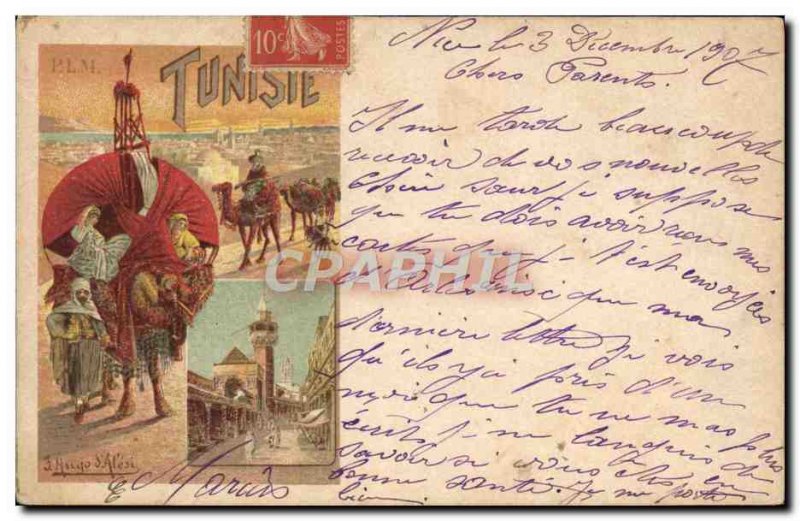 P.L.M.
TUNISIE
10c
POSTES
Nice le 3 Décembre 1907
Chers Parents.
Il me tarde beaucoup de
recevoir de vos nouvelles
Chère sœur je suppose
que tu dois avoir reçu mes
cartes que je t'est envoyées
CPARHIL
que ma
dernière lettre je vois
qu'ils y a près d'un
que tu ne mas plus
écrits je me languis de
savoir si vous êtes en
bonne santé. Je me porte
bien
F. Hugo d'Alési
Marius